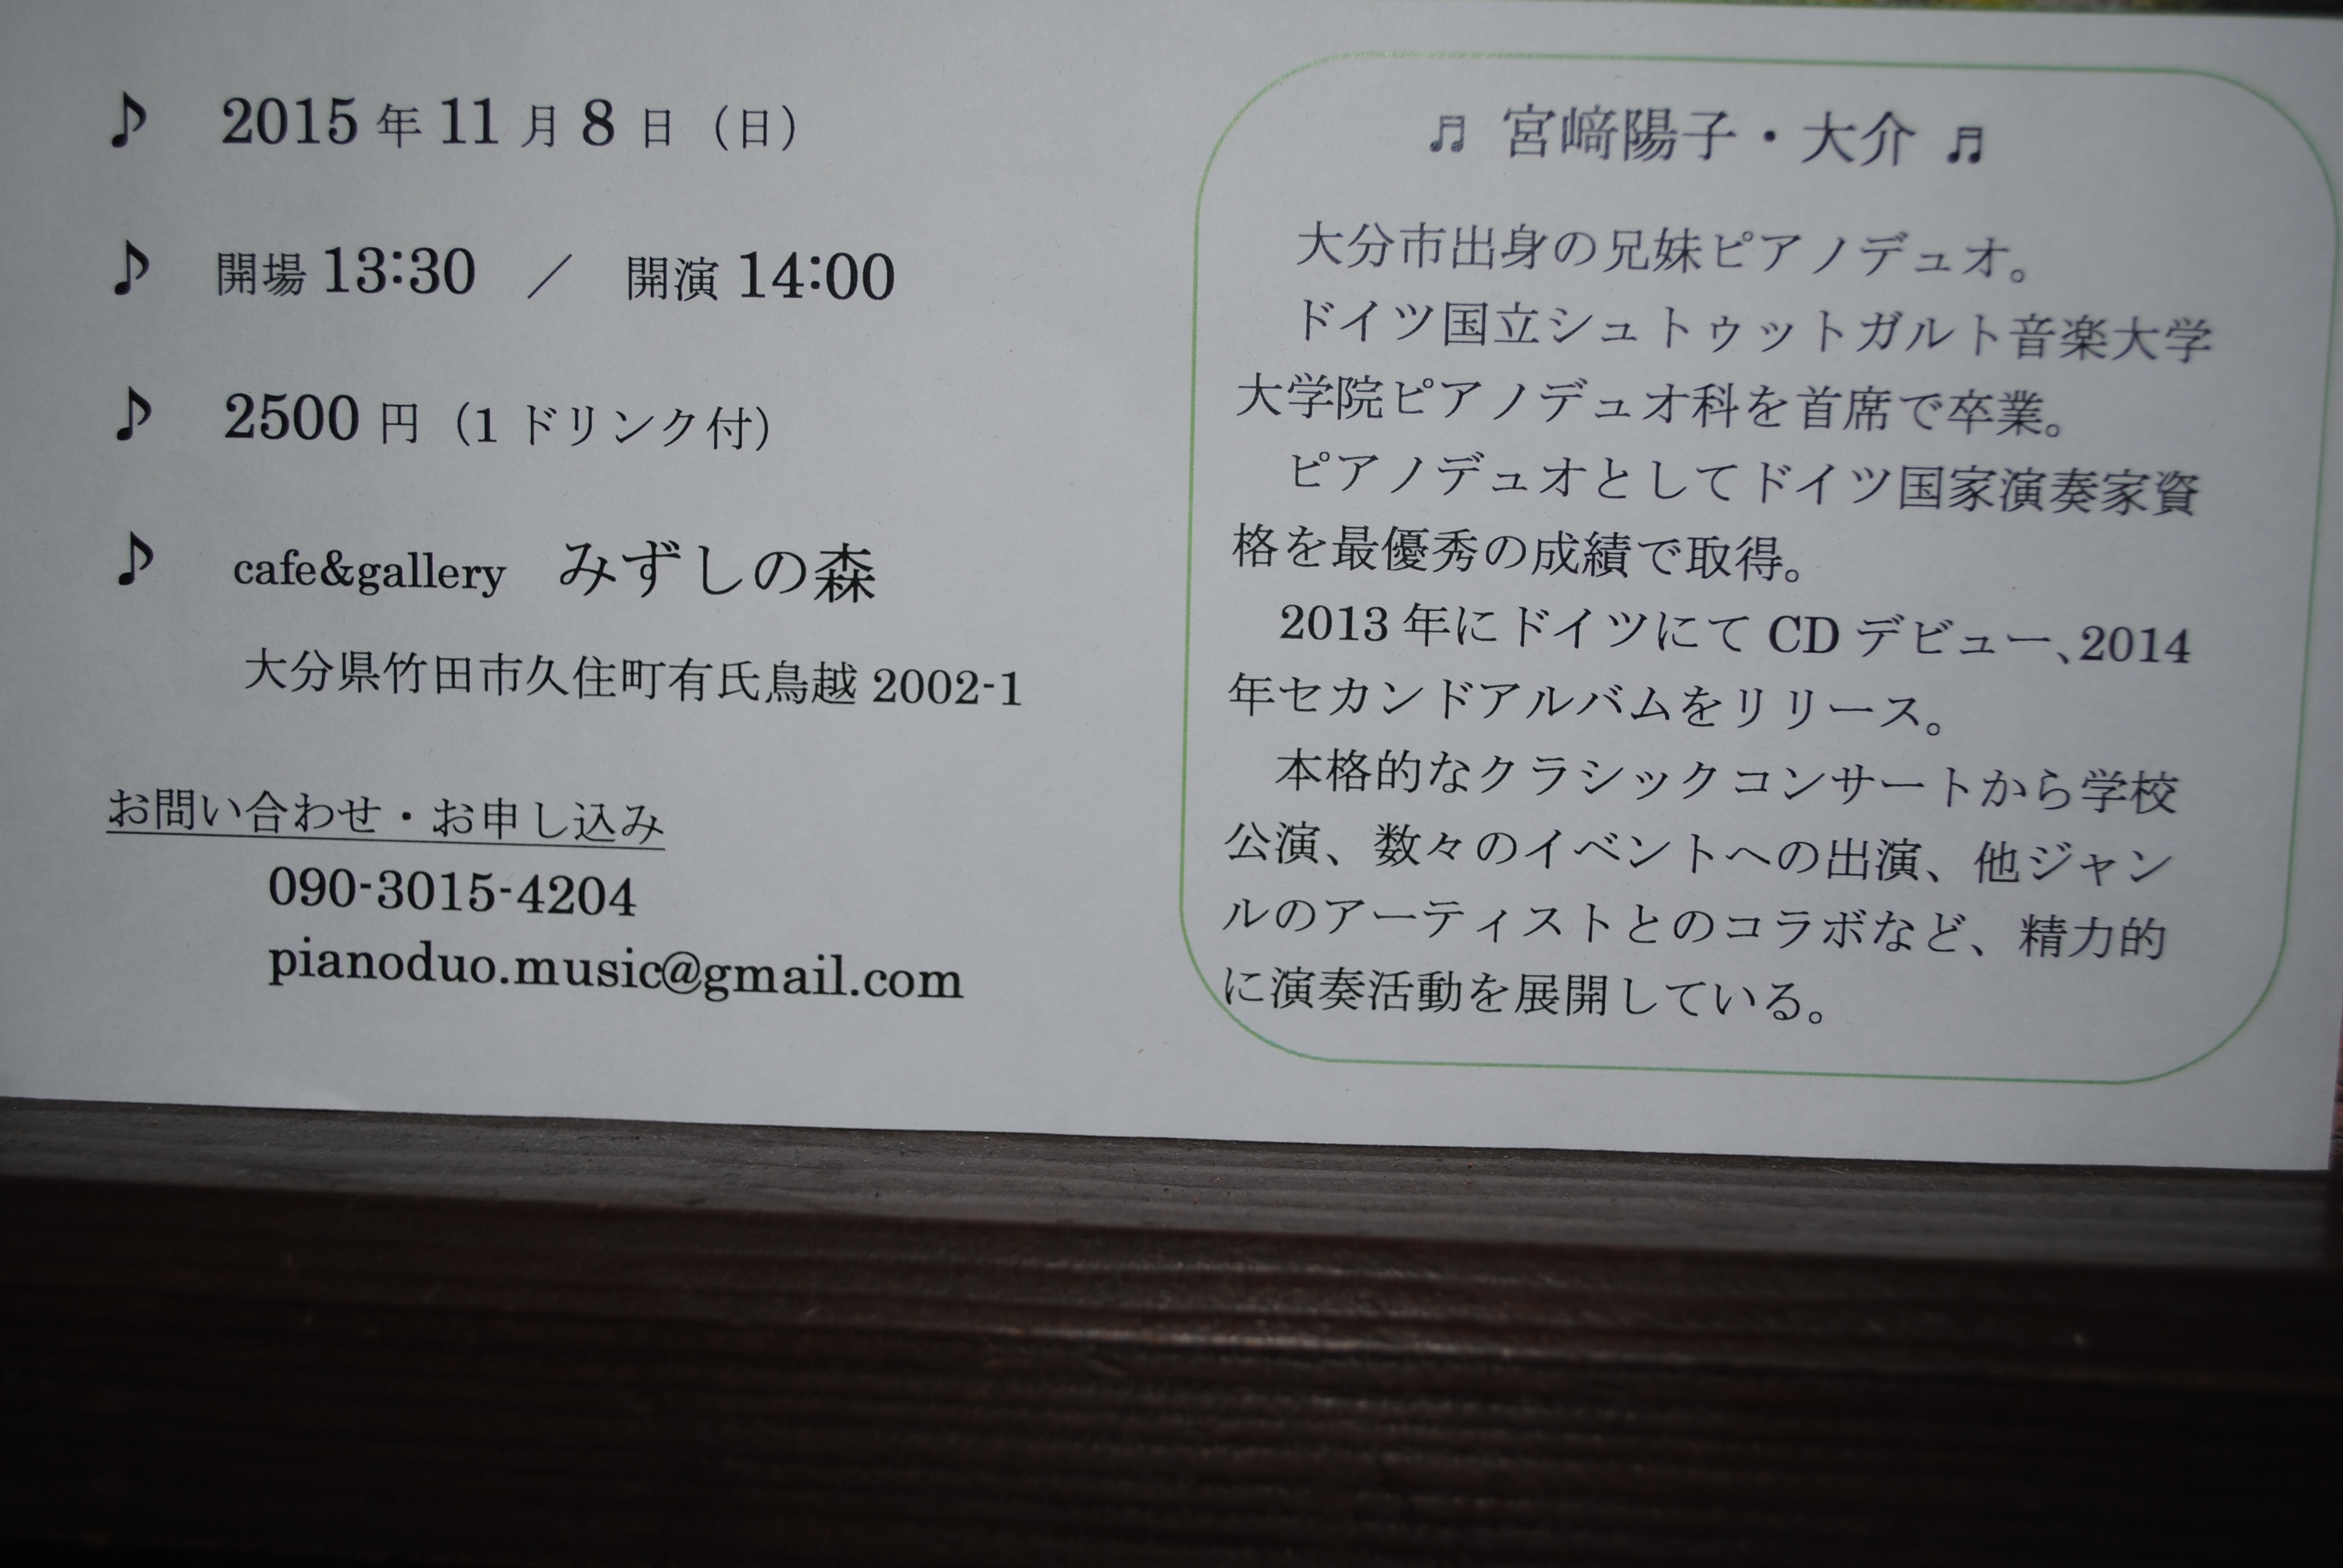 ♪ 2015年11月8日（日）
♪ 開場13:30 ／ 開演14:00
♪ 2500円（1ドリンク付）
♪ cafe&gallery みずしの森
大分県竹田市久住町有氏鳥越2002-1
お問い合わせ・お申し込み
090-3015-4204
pianoduo.music@gmail.com
♬ 宮﨑陽子・大介 ♬
大分市出身の兄妹ピアノデュオ。
ドイツ国立シュトゥットガルト音楽大学
大学院ピアノデュオ科を首席で卒業。
ピアノデュオとしてドイツ国家演奏家資
格を最優秀の成績で取得。
2013年にドイツにてCDデビュー、2014
年セカンドアルバムをリリース。
本格的なクラシックコンサートから学校
公演、数々のイベントへの出演、他ジャン
ルのアーティストとのコラボなど、精力的
に演奏活動を展開している。